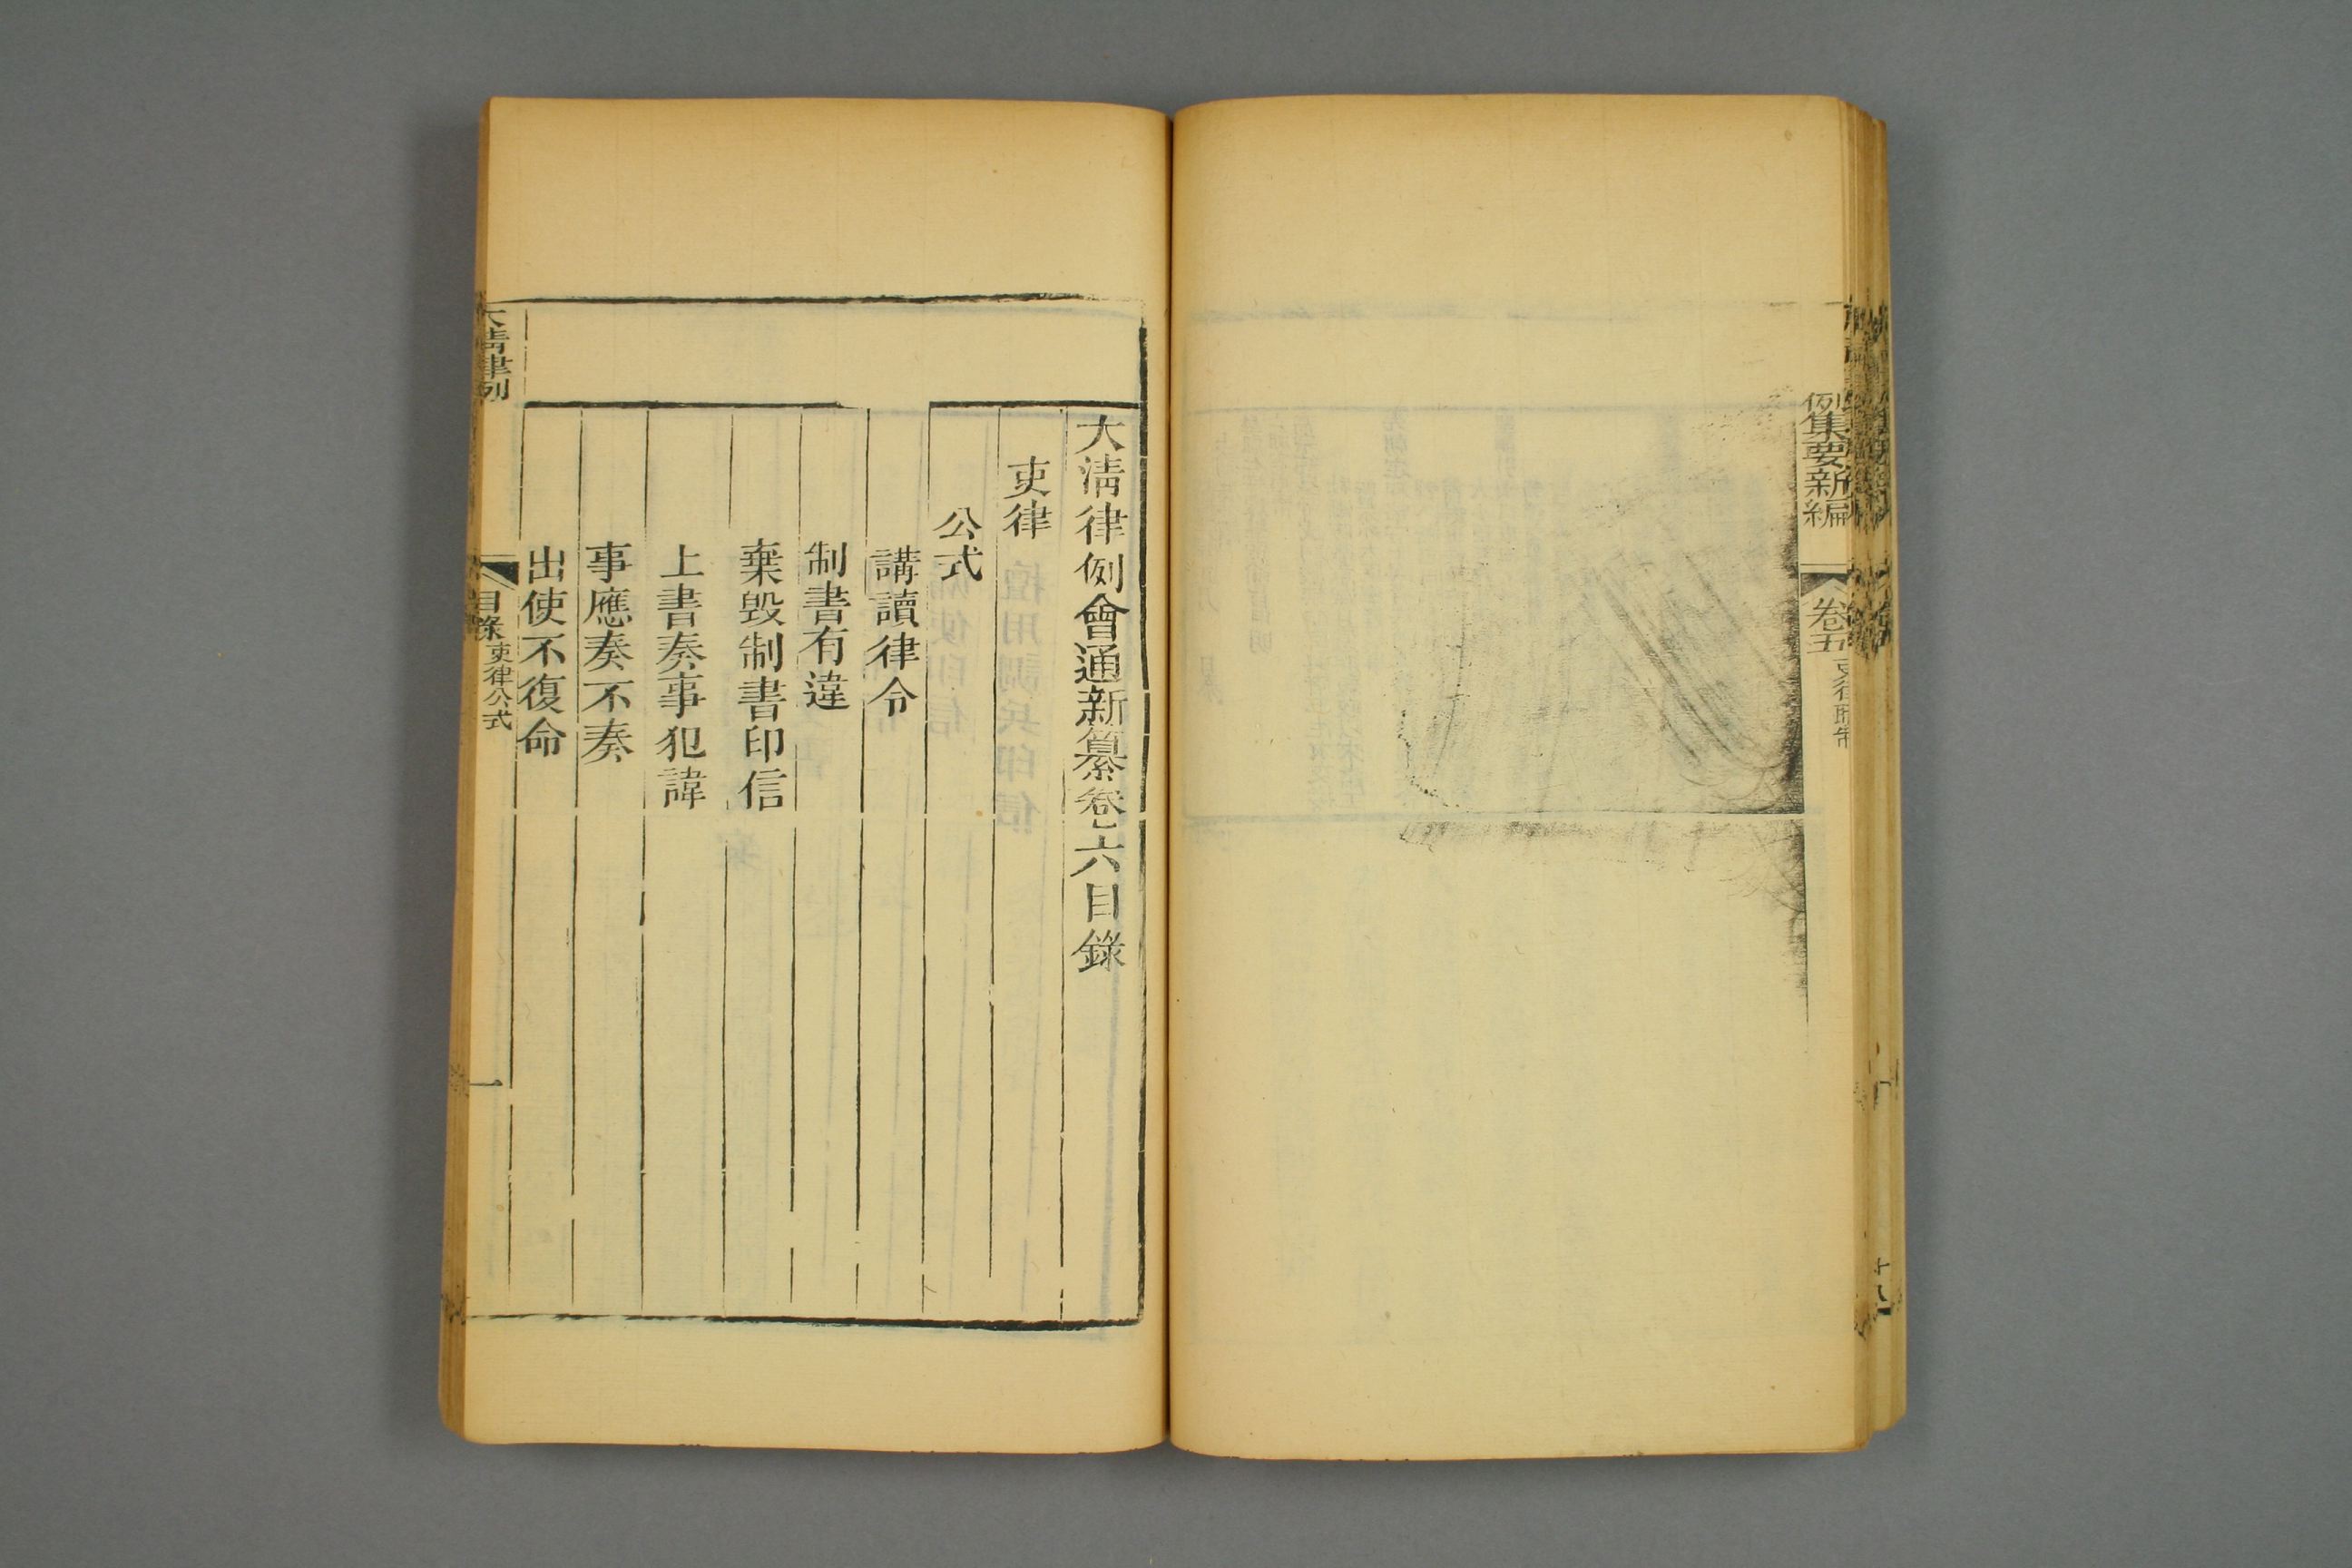 例集要新編
卷五
大清律例會通新纂卷六目錄
吏律
公式
講讀律令
制書有違
棄毀制書印信
上書奏事犯諱
事應奏不奏
出使不復命
大清律例
目錄
吏律公式
一